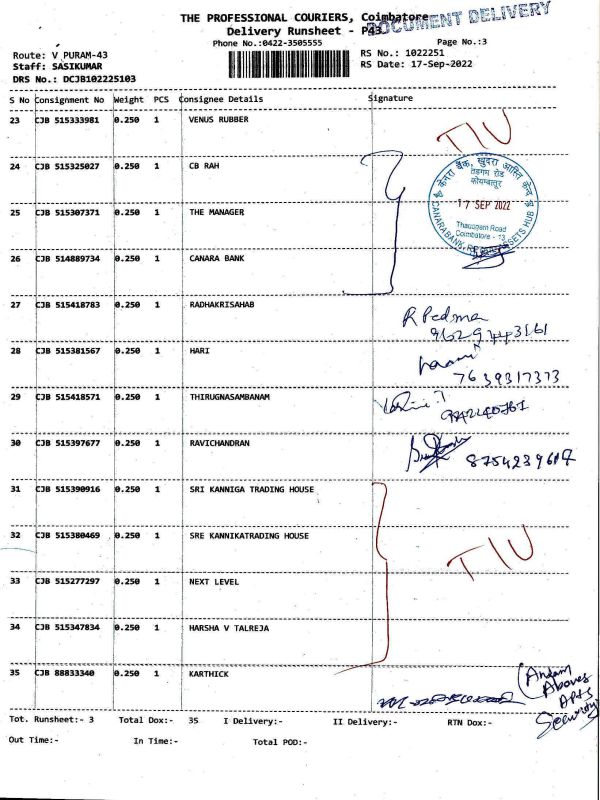 THE PROFESSIONAL COURIERS, Coimbatore
DOCUMENT DELIVERY
Delivery Runsheet - P43
Phone No.:0422-3505555
Page No.:3
Route: V PURAM-43
RS No.: 1022251
Staff: SASIKUMAR
RS Date: 17-Sep-2022
DRS No.: DCJB102225103
S No Consignment No Weight PCS Consignee Details Signature
23 CJB 515333981 0.250 1 VENUS RUBBER
TIU
24 CJB 515325027 0.250 1 CB RAH
केनरा बैंक, खुदरा आस्ति केन्द्र
तडगम रोड
कोयम्बत्तूर
17 SEP 2022
Thadagam Road
Coimbatore - 13
CANARA BANK, ASSETS HUB
25 CJB 515307371 0.250 1 THE MANAGER
26 CJB 514889734 0.250 1 CANARA BANK
27 CJB 515418783 0.250 1 RADHAKRISAHAB
R Padma
9629743161
28 CJB 515381567 0.250 1 HARI
7639317373
29 CJB 515418571 0.250 1 THIRUGNASAMBANAM
30 CJB 515397677 0.250 1 RAVICHANDRAN
31 CJB 515390916 0.250 1 SRI KANNIGA TRADING HOUSE
32 CJB 515380469 0.250 1 SRE KANNIKATRADING HOUSE
TIU
33 CJB 515277297 0.250 1 NEXT LEVEL
34 CJB 515347834 0.250 1 HARSHA V TALREJA
35 CJB 88833340 0.250 1 KARTHICK
Apts
Security
Tot. Runsheet:- 3 Total Dox:- 35 I Delivery:- II Delivery:- RTN Dox:-
Out Time:- In Time:- Total POD:-